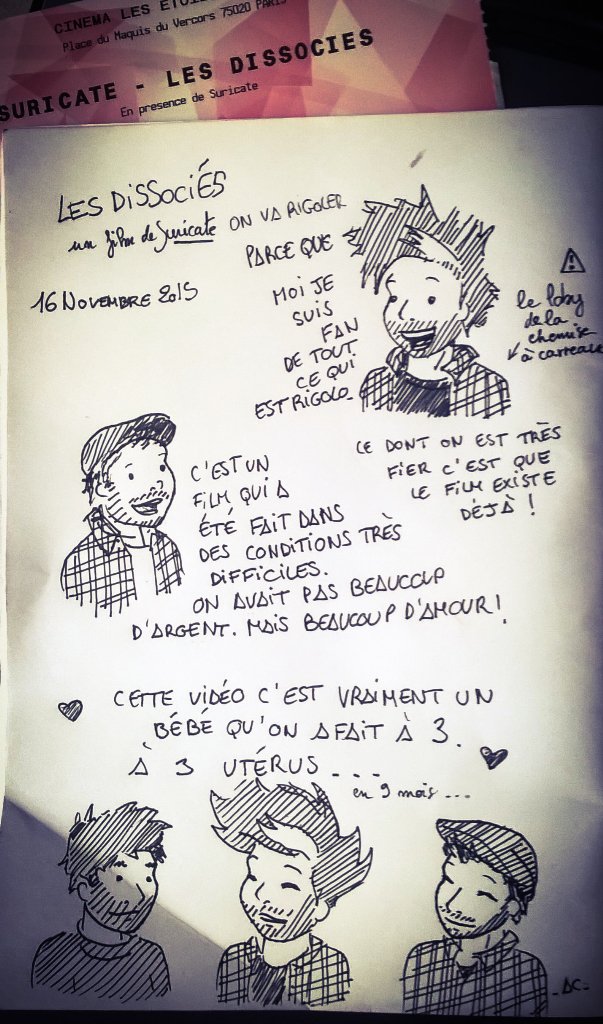 CINEMA LES ETOI
Place du Maquis du Vercors 75020 PARIS
SURICATE - LES DISSOCIES
En presence de Suricate
LES DISSOCIÉS
un film de Suricate
16 NOVEMBRE 2015
ON VA RIGOLER
PARCE QUE
MOI JE
SUIS
FAN
DE TOUT
CE QUI
EST RIGOLO
le loby
de la
chemise
à carreaux
CE DONT ON EST TRÈS
FIER C'EST QUE
LE FILM EXISTE
DÉJÀ !
C'EST UN
FILM QUI A
ÉTÉ FAIT DANS
DES CONDITIONS TRÈS
DIFFICILES.
ON AVAIT PAS BEAUCOUP
D'ARGENT. MAIS BEAUCOUP D'AMOUR!
CETTE VIDÉO C'EST VRAIMENT UN
BÉBÉ QU'ON A FAIT À 3.
À 3 UTÉRUS ...
en 9 mois ...
- AC -